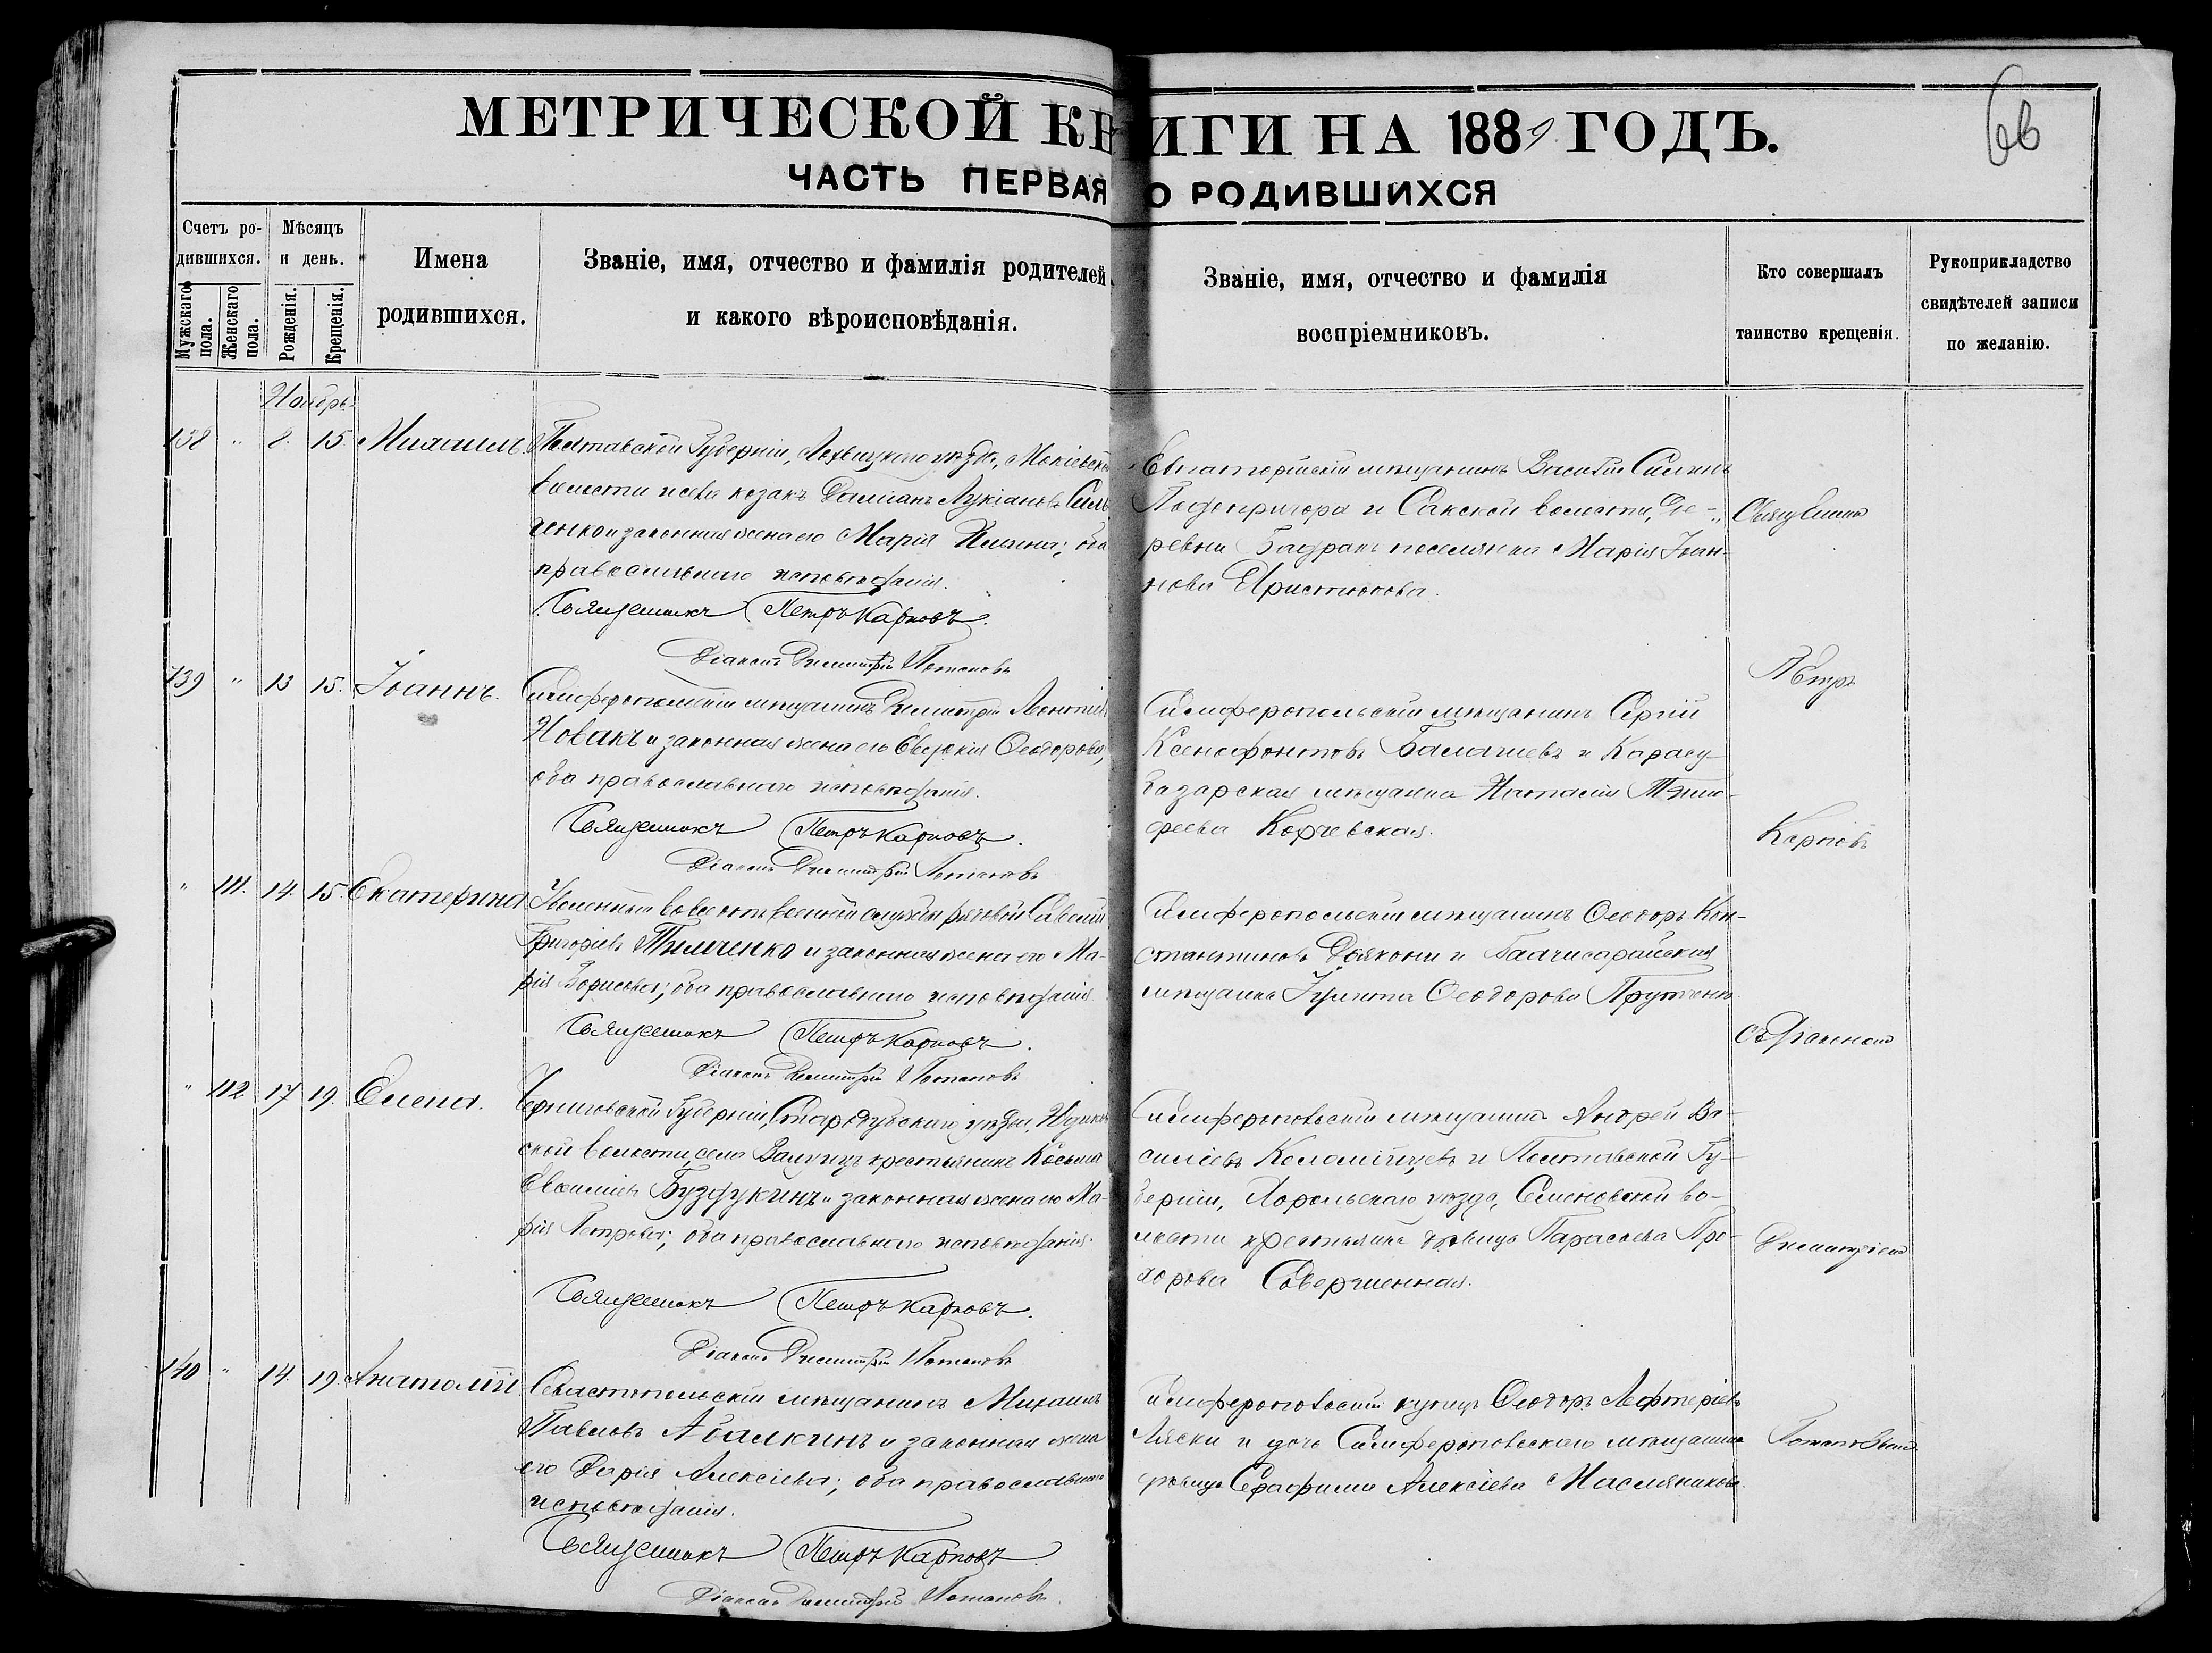 МЕТРИЧЕСКОЙ КНИГИ НА 1889 ГОДЪ.
66
ЧАСТЬ ПЕРВАЯ О РОДИВШИХСЯ
Счетъ родившихся.
Мужскаго пола.
Женскаго пола.
Мѣсяцъ и день.
Рожденія.
Крещенія.
Имена родившихся.
Званіе, имя, отчество и фамилія родителей
и какого вѣроисповѣданія.
Званіе, имя, отчество и фамилія
воспріемниковъ.
Кто совершалъ
таинство крещенія.
Рукоприкладство
свидѣтелей записи
по желанію.
Ноябрь
138 " 8. 15. Михаилъ.
Полтавской Губерніи, Лохвицкаго уѣзда,
волости козакъ Даміанъ Лукіановъ Силь
ченко и законная жена его Марія Ильина; оба
православнаго исповѣданія.
Священникъ Петръ Карповъ.
Діаконъ Димитрій Потаповъ
Евпаторійскій мѣщанинъ Василій
Подопригора и Сакской волости, де-
ревни поселянка Марія Іоан-
нова
Священникъ
Петръ
Карповъ
съ Діакономъ
Димитріемъ
Потаповымъ
139 " 13 15. Іоаннъ.
Симферопольскій мѣщанинъ Димитрій Леонтіев
Новакъ и законная жена его Евдокія Ѳеодорова,
оба православнаго исповѣданія.
Священникъ Петръ Карповъ.
Діаконъ Димитрій Потаповъ
Симферопольскій мѣщанинъ Сергій
Ксенофонтовъ и Карасу-
базарская мѣщанка Наталія Тимо-
феева Корчевская.
" 111. 14. 15. Екатерина
Уволенный военной службы рядовой
Григоріевъ Тимченко и законная жена его Ма-
рія Борисова; оба православнаго исповѣданія.
Священникъ Петръ Карповъ.
Діаконъ Димитрій Потаповъ
Симферопольскій мѣщанинъ Ѳеодоръ Кон-
стантиновъ и Бахчисарайская
мѣщанка Ѳеодорова
" 112 17 19. Елена.
Черниговской Губерніи, Стародубскаго уѣзда,
ской волости, села крестьянинъ Косьма
Буздукинъ и законная жена его Ма-
рія Петрова; оба православнаго исповѣданія.
Священникъ Петръ Карповъ.
Діаконъ Димитрій Потаповъ
Симферопольскій мѣщанинъ Андрей Ва-
силіевъ Коломійцевъ и Полтавской Гу-
берніи, Хорольскаго уѣзда, Семеновской во-
лости дѣвица Параскева Про-
хорова Совершенная.
140 " 14. 19. Анатолій
Севастопольскій мѣщанинъ Михаилъ
Павловъ Абалкинъ и законная жена
его Дарія Алексіева; оба православнаго
исповѣданія.
Священникъ Петръ Карповъ
Діаконъ Димитрій Потаповъ
Симферопольскій купецъ Ѳеодоръ Лефтеріевъ
Ляски и дочь Симферопольскаго мѣщанина
дѣвица Серафима Алексіева Масляникова.